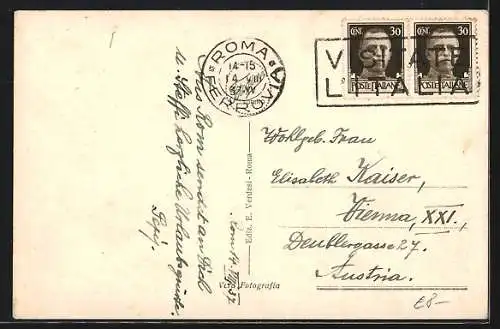 ROMA
14-15
14 VIII
37 XV
FERROVIA
CENT. 30
POSTE ITALIANE
CENT. 30
POSTE ITALIANE
VISITATE
L'ITALIA
Rom 14. VIII. 37
Aus Rom sendet an Dich
u. Steffi herzliche Urlaubsgrüsse
Ediz. E. Verdesi - Roma
Vera Fotografia
Wohlgeb. Frau
Elisabeth Kaiser,
Vienna, XXI.,
Deublergasse 27.
Austria.
€8-